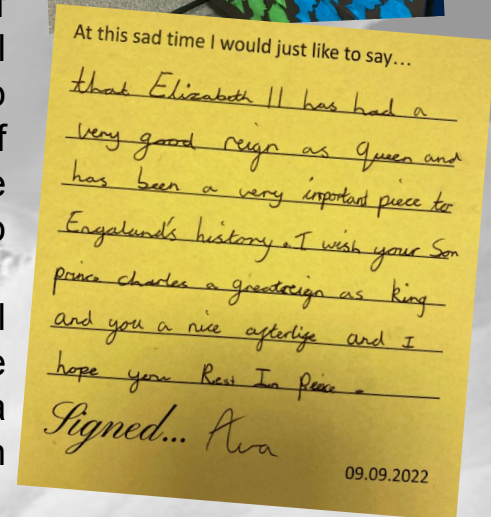 At this sad time I would just like to say...
that Elizabeth II has had a
very good reign as queen and
has been a very important piece to
Engalund's history. I wish your Son
prince charles a great reign as king
and you a nice afterlife and I
hope you Rest In Peice.
Signed... Ava
09.09.2022